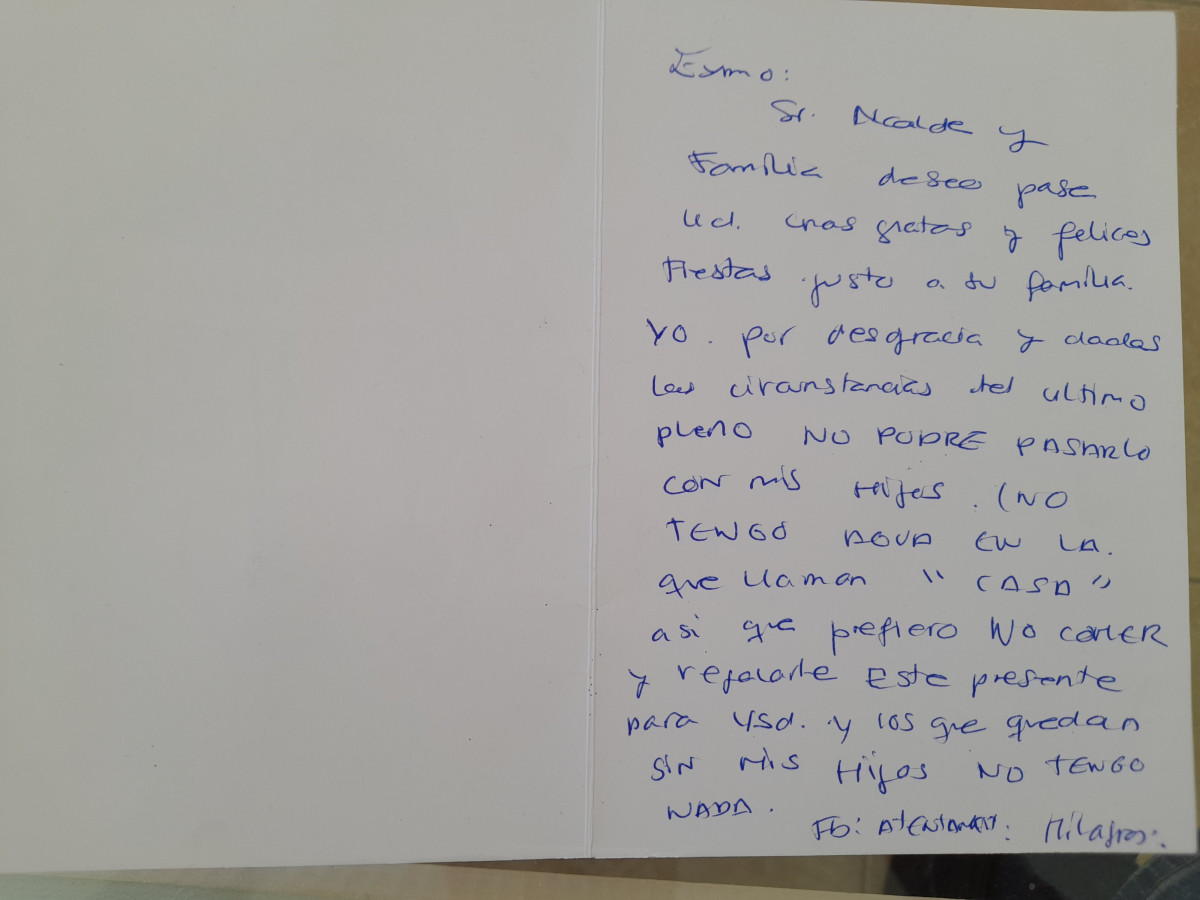 Exmo:
Sr. Alcalde y
Familia deseo pase
Ud. unas gratas y felices
Fiestas justo a su família.
YO. por desgracia y dadas
las circunstancias del ultimo
pleno NO PODRE PASARLO
CON mis Hijos. (NO
TENGO AGUA EN LA.
que llaman "CASA"
asi que prefiero NO COMER
y regalarle Este presente
para Usd. y los que quedan
SIN mis Hijos NO TENGO
NADA.
Fb: ATENTAMENT: Milagros.